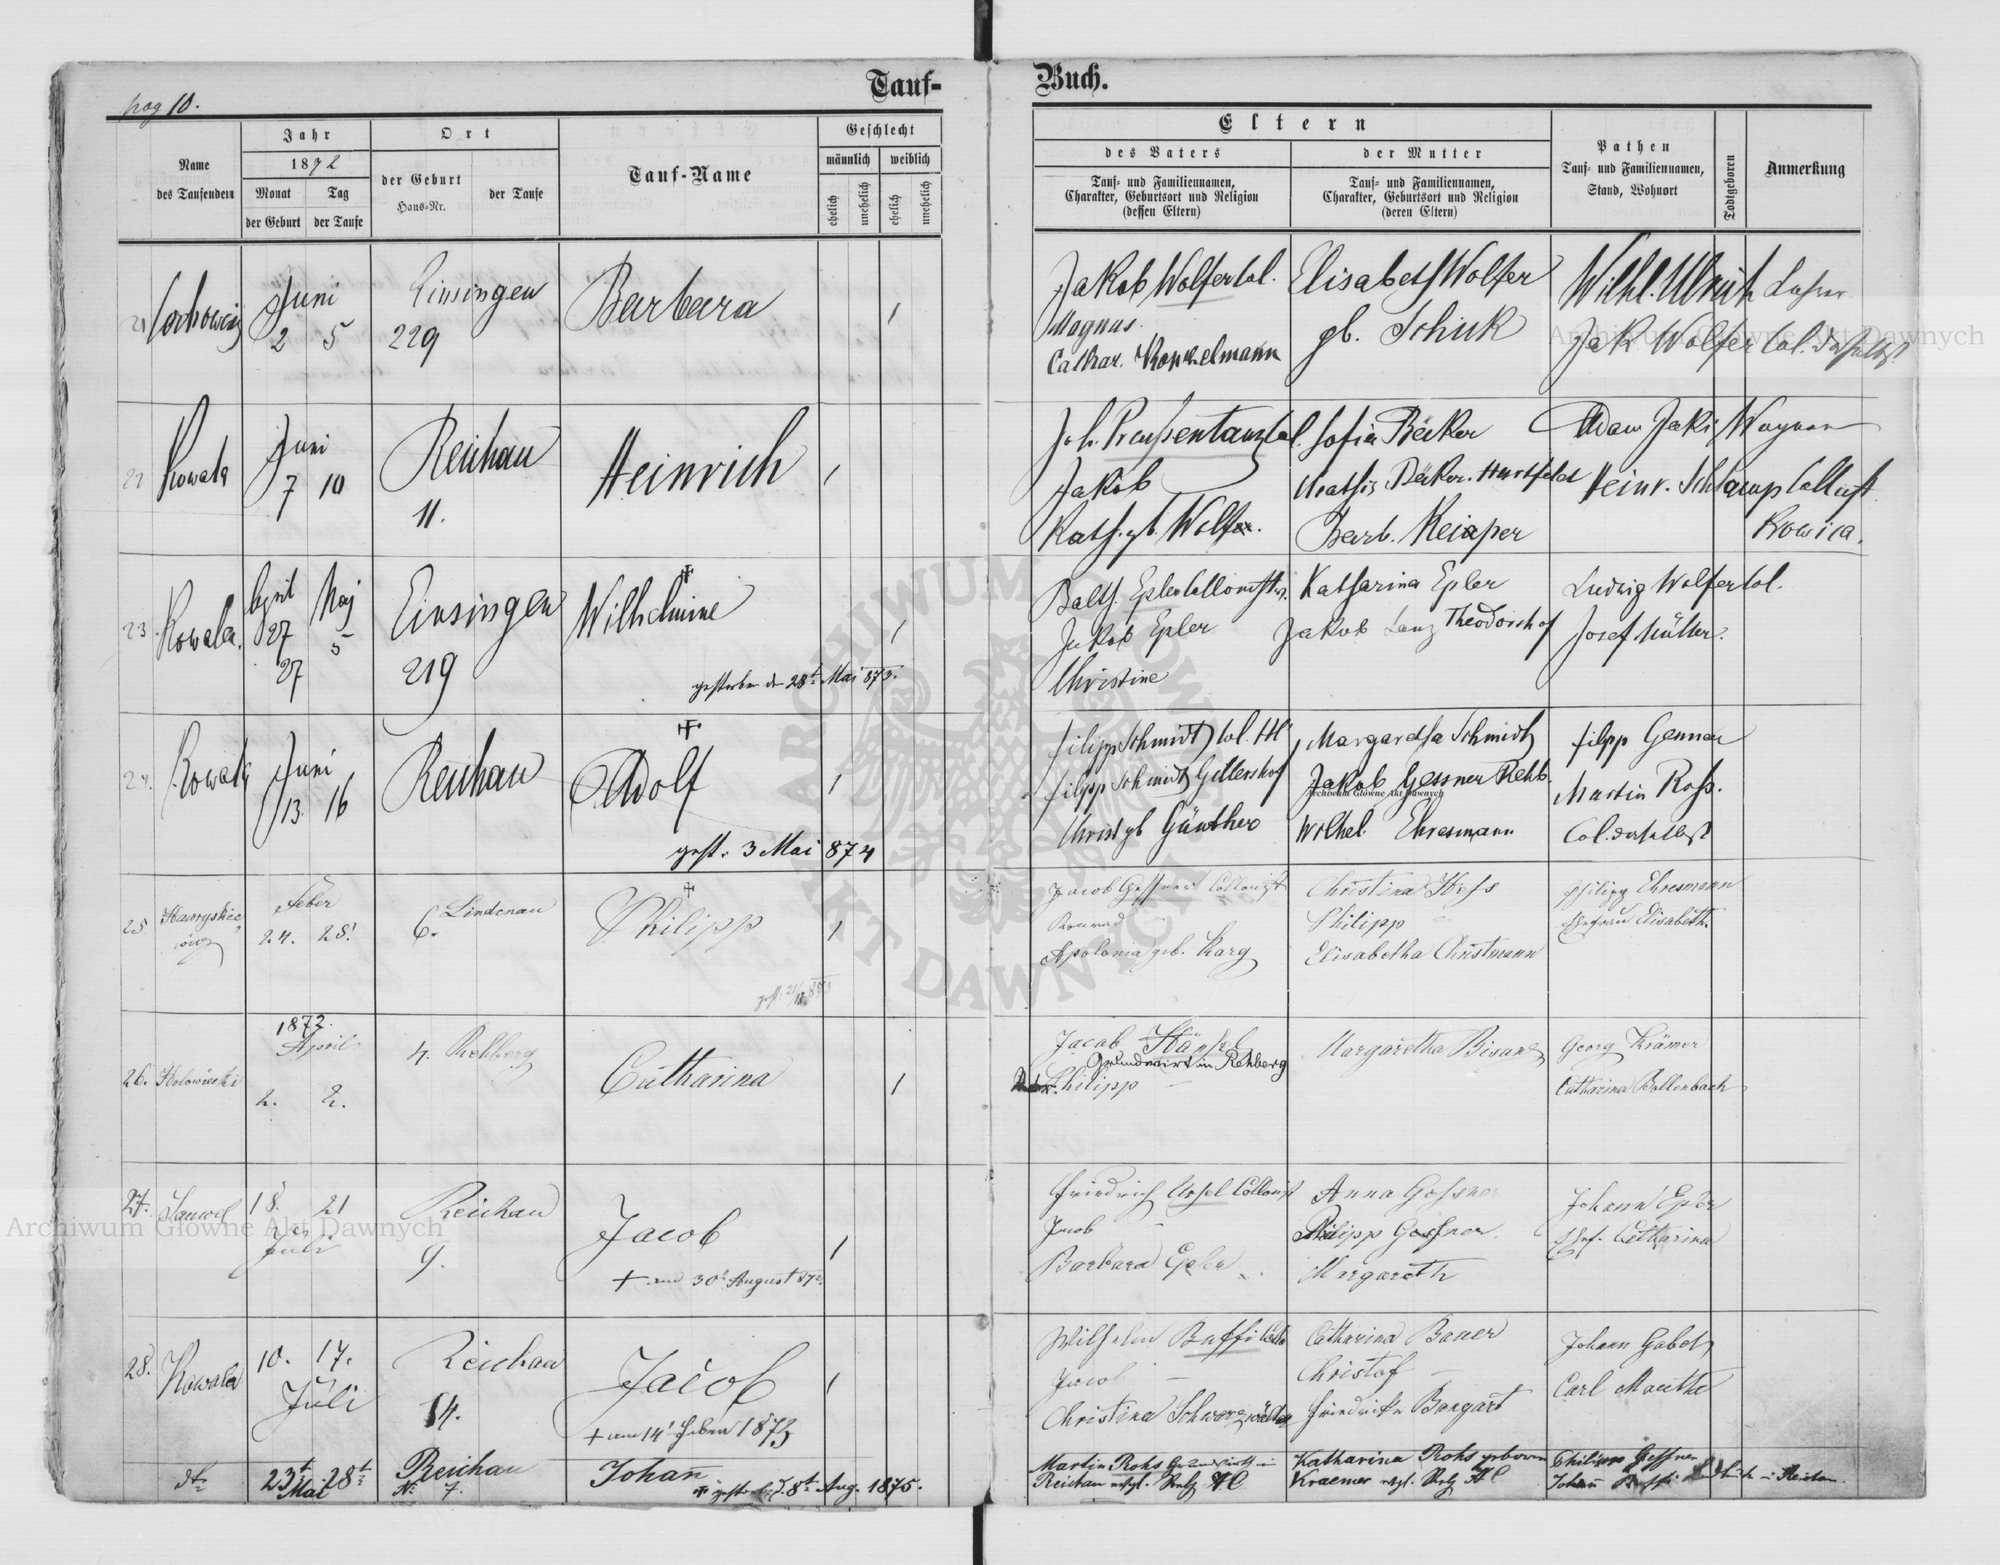 pag 10.
Tauf-
Buch.
Name
des Taufenden
Jahr
1872
Monat
der Geburt
Tag
der Taufe
Ort
der Geburt
Haus-Nr.
der Taufe
Tauf-Name
Geschlecht
männlich
weiblich
ehelich
unehelich
ehelich
unehelich
Eltern
des Vaters
Tauf- und Familiennamen,
Charakter, Geburtsort und Religion
(dessen Eltern)
der Mutter
Tauf- und Familiennamen,
Charakter, Geburtsort und Religion
(deren Eltern)
Pathen
Tauf- und Familiennamen,
Stand, Wohnort
Todtgeboren
Anmerkung
Juni
2 5
Einsingen
229
Barbara
1
Jakob Wolfer Col.
Magnus
Cathar. Koppelmann
Elisabeth Wolfer
gb. Schick
Wilhl. Ulrich
Jak Wolfer Col. daselbst
22
Kowala
Juni
7 10
Reichau
11.
Heinrich
1
Joh. Preussentanz Col.
Jakob
Kath. gb. Wolfer.
Sofia Bäker
Mathis Bäker. Hartfeld
Barb.
Adam Jaki Wagner
Heinr. Schlamp
23.
Kowala.
April Maj
27 5
27
Einsingen
219
Wilhelmine
1
gestorben den 28t Mai 873.
Balth. Epler
Jakob Epler
Christine
Katharina Epler
Jakob Lanz Theodorshof
Ludwig Wolfer Col.
Josef Müller.
24.
Kowala
Juni
13. 16
Reichau
Adolf
1
gest. 3 Mai 874
Filipp Schmidt Col. HC
Filipp Schmidt Gillershof
Christ gb Günther
Margaretha Schmidt
Jakob Gessner Rehb.
Wilhel. Ehresmann
Filipp
Martin Rohs.
Col. daselbst
25.
Feber
24. 25.
6. Lindenau
Philipp
1
Jacob Gessner Collonist
Konrad
Apolonia geb. Karg
Christina Hess
Philipp
Elisabetha Christmann
Philipp Ehresmann
Ehefrau Elisabeth.
26.
1872.
April
2. 2.
4. Rehberg
Catharina
1
Jacob Hänsel
Grundwirt in Rehberg
Philipp
Margaretha Bisanz
Georg Krämer
Catharina Bollenbach
27.
18. 21
Juli
Reichau
9.
Jacob
1
+ am 30t August 872.
Friedrich Ursel Collonist
Jacob
Barbara Epler
Anna Gessner
Philipp Gessner.
Margareth
Johann Epler
Ehef. Catharina
28.
Kowala
10. 17.
Juli
Reichau
14.
Jacob
1
+ am 14t Feber 1873
Wilhelm
Jacob
Christina Schwarzwälder
Catharina Bauer
Christof
Friedricke Bangart
Johann Gabel
Carl Mauthe
23t 28t
Mai
Reichau
Nr. 7.
Johañ
gestorben d. 8t Aug. 1875.
Martin Rohs Grundwirth in
Reichau
Katharina Rohs geboren
Kraemer
Philipp Gessner
Archiwum Główne Akt Dawnych
Archiwum Główne Akt Dawnych
Archiwum Główne Akt Dawnych
ARCHIWUM GŁÓWNE AKT DAWNYCH